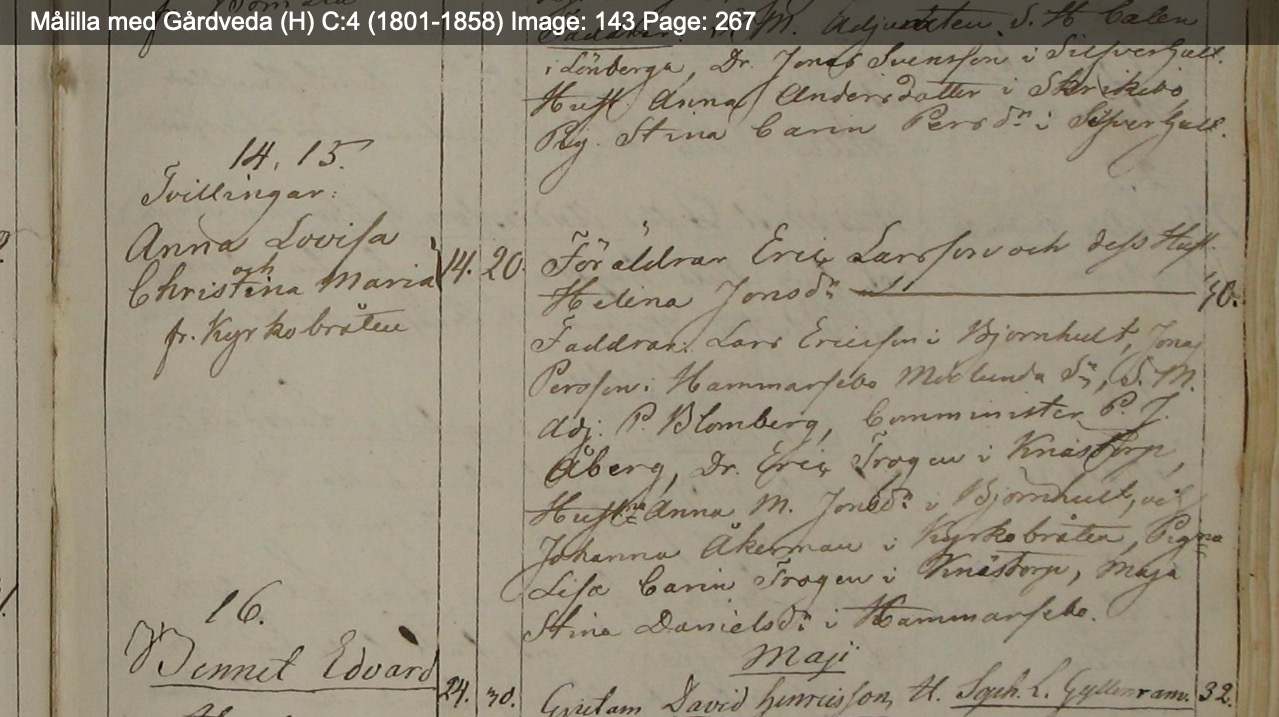 Målilla med Gårdveda (H) C:4 (1801-1858) Image: 143 Page: 267
Faddrar: S. M. Adjuncten S. H Calen
i Lönberga, Dr. Jonas Svensson i Silfverhult.
Hust. Anna Andersdotter i Skrikebo
Pig. Stina Carin Persdr i Silfverhult.
14, 15.
Tvillingar:
Anna Lovisa
och
Christina Maria
fr. Kyrkobråten
14. 20.
Föräldrar Eric Larsson och dess Hust.
Helena Jonsdr 40.
Faddrar: Lars Ericsson i Bjornhult, Jonas
Persson i Hammarsebo Sn, S. M.
Adj. P Blomberg, Comminister P. J.
Åberg, Dr. Eric Trogen i Knästorp,
Hustr. Anna M. Jonsdr i Bjornhult, och
Johanna Åkerman i Kyrkobråten, Pigna
Lisa Carin Trogen i Knästorp, Maja
Stina Danielsdr i Hammarsebo.
Maji
16.
Bennet Edvard
24. 30.
David Henricsson, H. Soph. L. Gyllenram. 32.